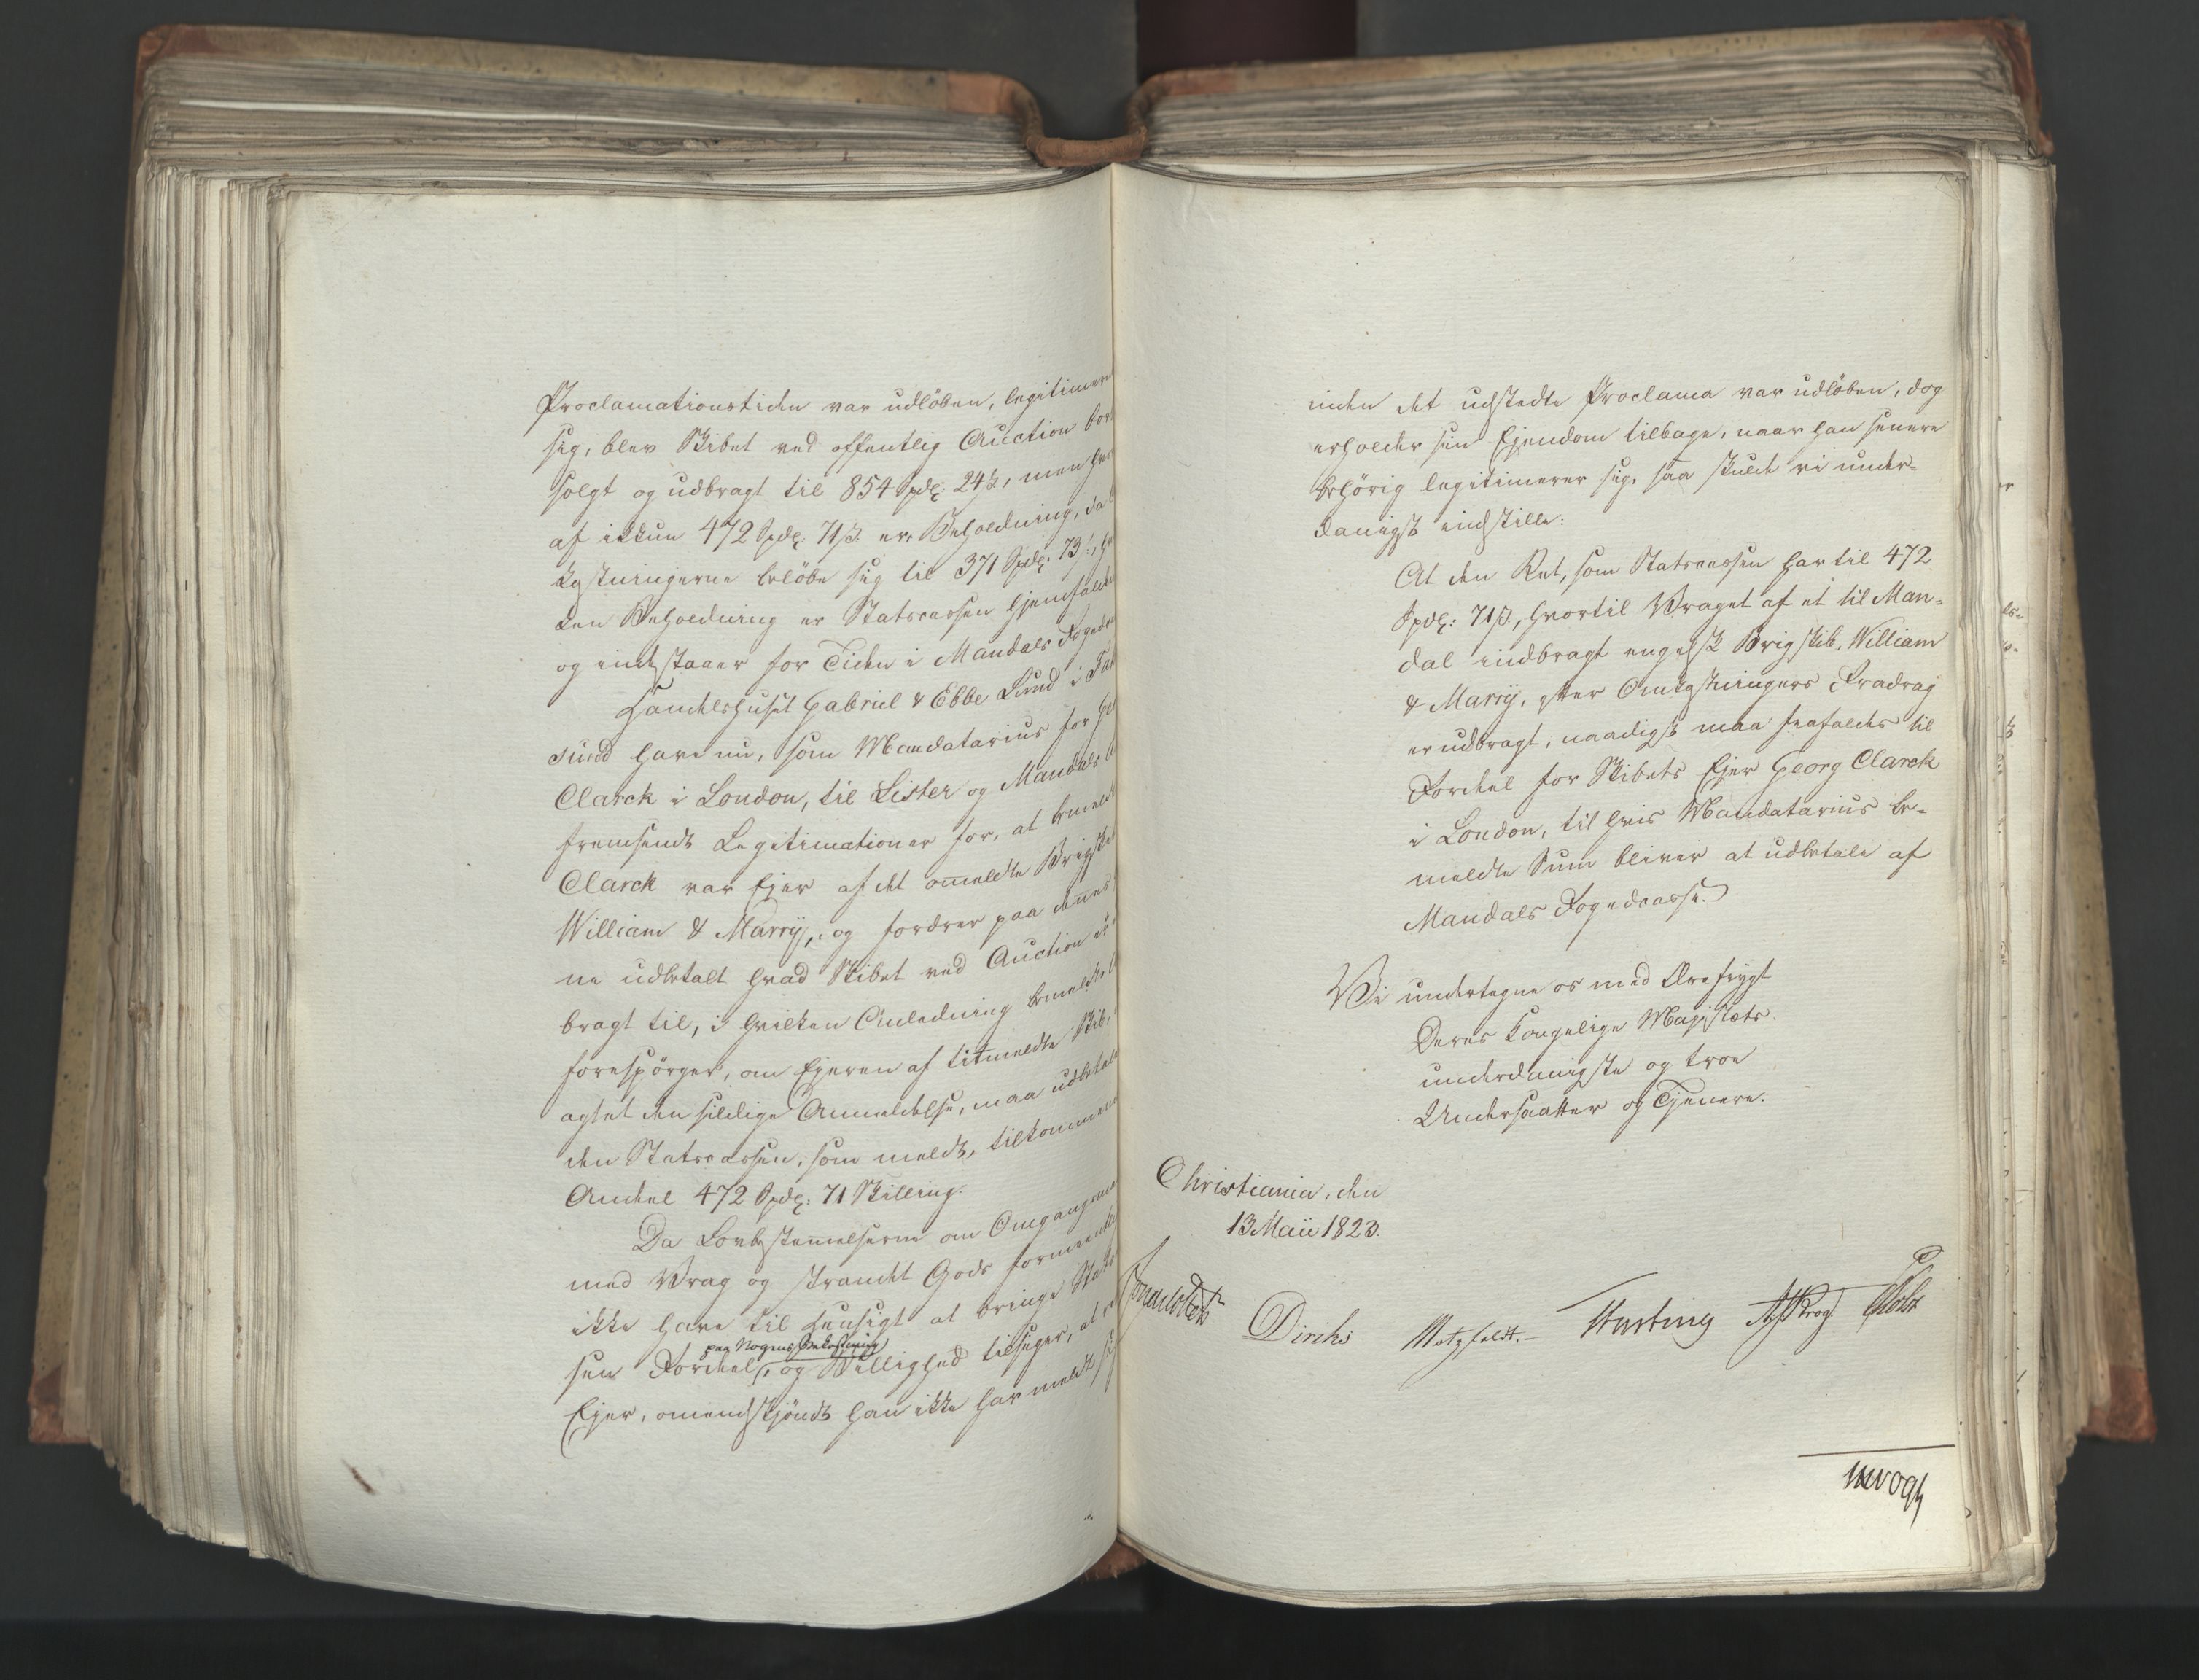 Proclamationstiden var udlöben, legitimere
sig, blev Skibet ved offentlig Auction bort
solgt og udbragt til 854 Spdl: 24 ß, men her
af ikkun 472 Spdl: 71 ß. er Beholdning, da
kostningerne belöbe sig til 371 Spdl: 73 ß,
ken Beholdning er Statscassen hjemfalden
og indestaaer for Tiden i Mandals Fogderie
Handelshuset Gabriel & Ebbe Lund i Far
sund have nu, som Mandatarius for
Clarck i London, til Lister og Mandals
fremsendt Legitimationer for, at bemeldte
Clarck var Ejer af det ommeldte Brigskib
William & Marrÿ, og fordrer paa dennes
ne udbetalt hvad Skibet ved Auction er
bragt til, i hvilken Anledning bemeldte
forespörger, om Ejeren af titmeldte Skib,
agtet den sildige Anmeldelse, maa udbetales
den Statscassen, som meldt, tilkommende
Andeel 472 Spdl: 71 Skilling.
Da Lovbestemmelserne om Omgangsmaa
med Vrag og strandet Gods formeentlig
ikke have til Hensigt at bringe Stats
paa Nogens Bekostning
sen Fordeel, og Billighed tilsiger, at
Ejer, omendskjöndt han ikke har meldt sig
inden det udstedte Proclama var udlöben, dog
erholder sin Ejendom tilbage, naar han senere
behörig legitimerer sig, saa skulde vi under-
danigst indstille:
At den Ret, som Statscassen har til 472
Spdl: 71 ß, hvortil Vraget af et til Man-
dal indbragt engelsk Brigskib, William
& Marrÿ, efter Omkostningers Fradrag
er udbragt, naadigst maa frafaldes til
Fordeel for Skibets Ejer Georg Clarck
i London, til hvis Mandatarius be-
meldte Sum bliver at udbetale af
Mandals Fogedcasse.
Vi undertegne os med Ærefrygt
Deres Kongelige Majestæts
underdanigste og troe
Undersaatter og Tjenere.
Christiania, den
13 Maii 1823.
Sommerhielm
Diriks Motzfeldt.- Hasting Krog Holst
Vogt